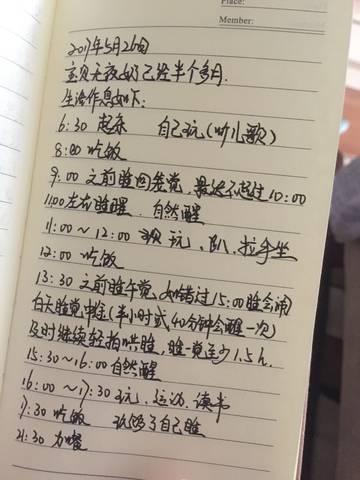 Place:
Member:
2017年5月26日
宝贝无夜奶已经半个多月.
生活作息如下:
6:30 起床 自己玩(听儿歌)
8:00 吃饭
9:00 之前睡回笼觉,最迟不超过10:00
11:00左右睡醒 自然醒
11:00~12:00 玩、趴、拉手坐
12:00 吃饭
13:30 之前睡午觉,如错过15:00睡会闹
白天睡觉中途(半小时或40分钟会醒一次)
及时继续轻拍哄睡,睡一觉至少1.5h.
15:30~16:00 自然醒
16:00~17:30 玩、运动、读书
17:30 吃饭 玩够了自己睡
21:30 加餐